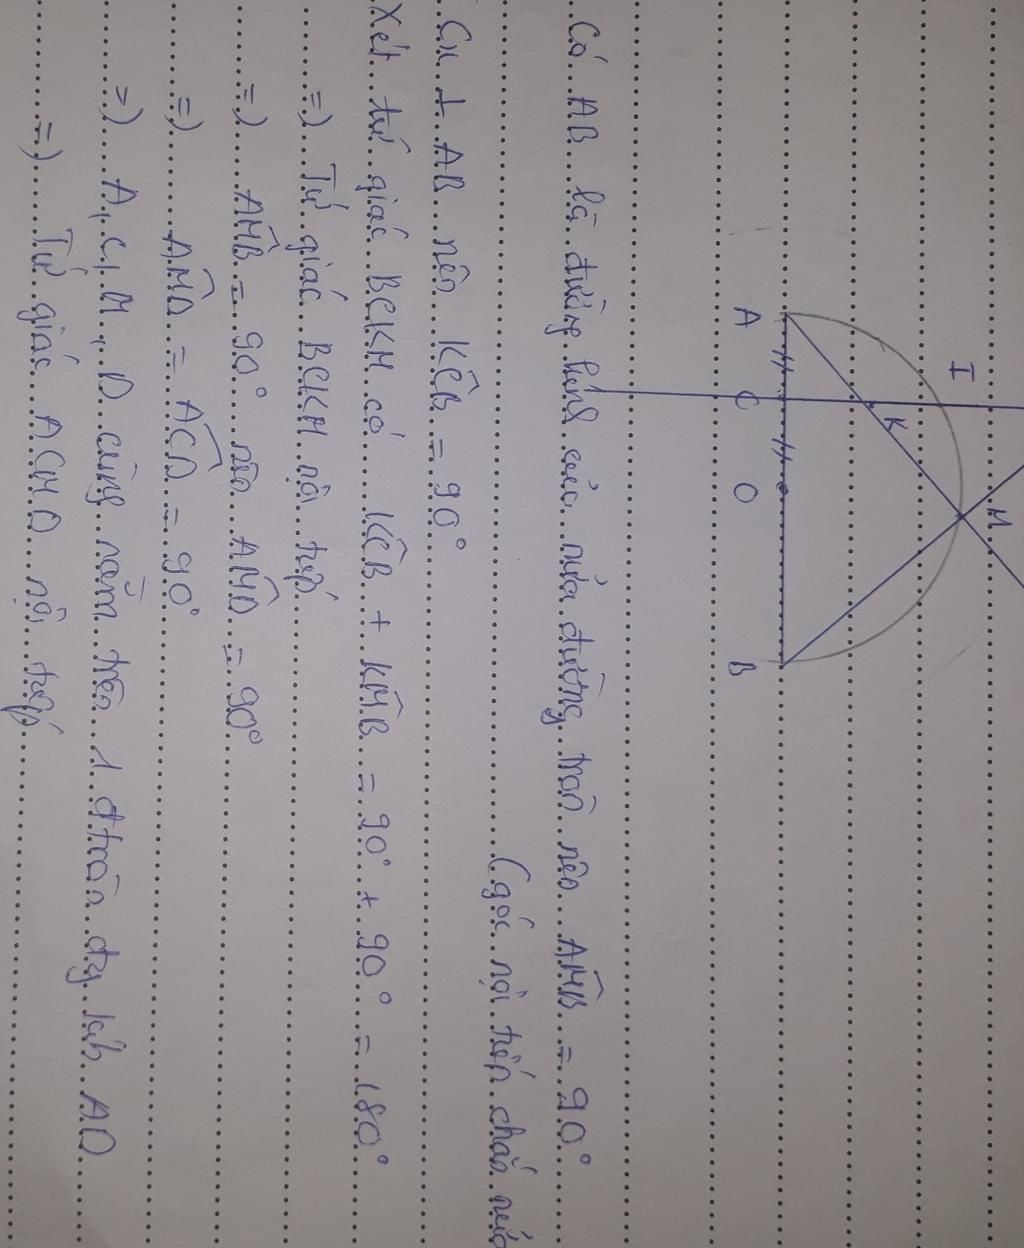 I
M
K
A C O B
Có AB là đường kính của nửa đường tròn nên AMB = 90°
(góc nội tiếp chắn nửa
Cx ⊥ AB nên KCB = 90°
Xét tứ giác BCKM có KCB + KMB = 90° + 90° = 180°
=) Tứ giác BCKM nội tiếp
=) AMB = 90° nên AMD = 90°
=) AMD = ACD = 90°
=) A, C, M, D cùng nằm trên 1 đtròn đg kính AD
=) Tứ giác ACMD nội tiếp